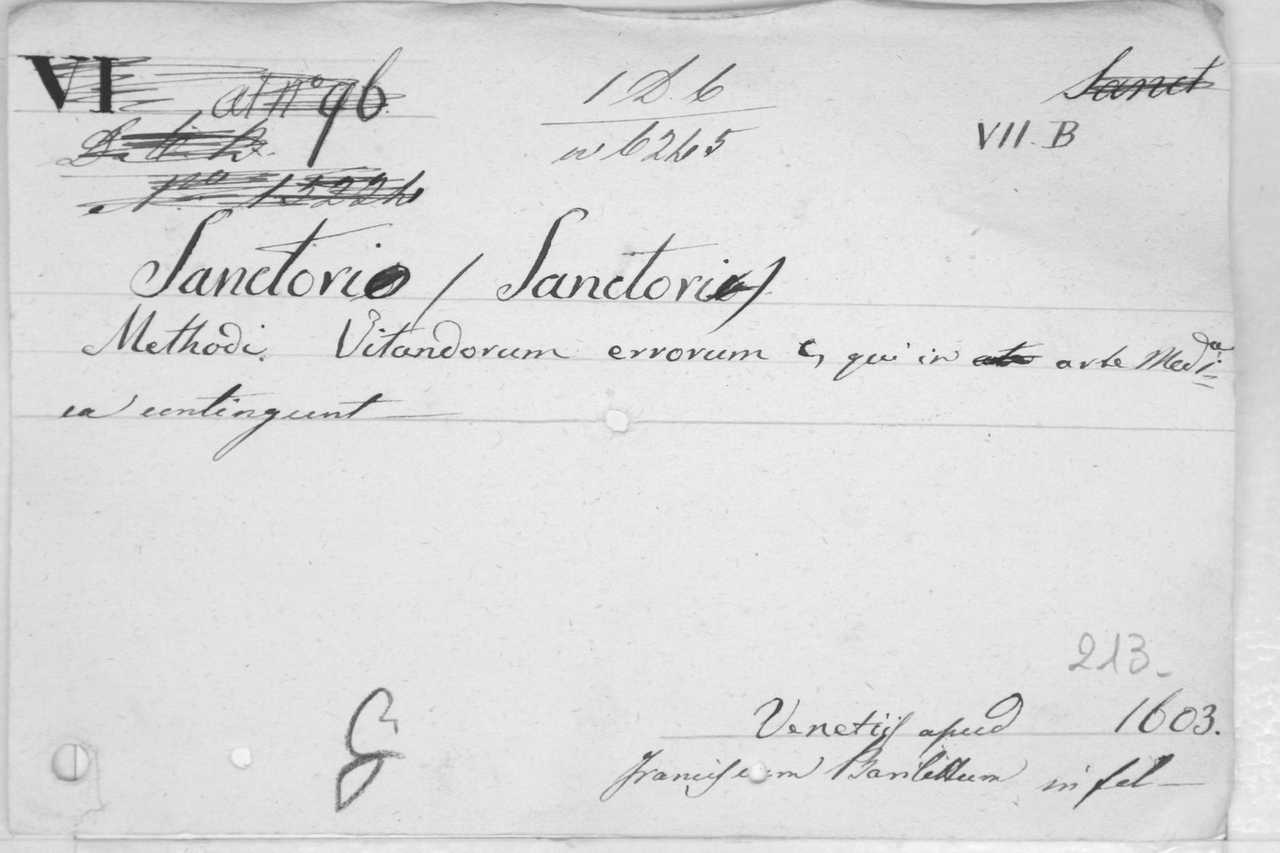 VI at nº 96
1 D. 6
Sanct
n 6245
VII. B
Nº 13224
Sanctorio / Sanctorio)
Methodi. Vitandorum errorum qui in arte Medi
ca contingunt
213
Venetiis apud 1603.
Franciscum Barilettum in fol